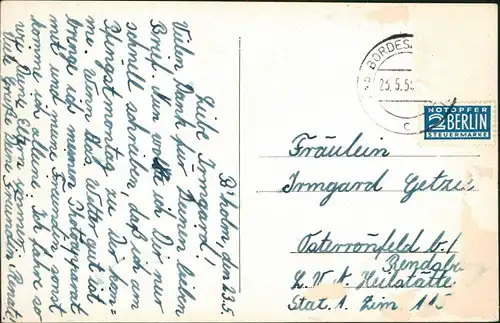 B'holm, den 23.5.
Liebe Irmgard!
Vielen Dank für Deinen lieben
Brief. Nun wollte ich Dir nur
schnell schreiben, daß ich am
Pfingstmontag zu Dir kom-
me. Wenn das Wetter gut ist
bringe ich meinen Photoapparat
mit und meine Freundin, sonst
komme ich alleine. Ich fahre so
wie Deine Eltern
Viele Grüße Deine Freundin Renate
BORDES
23.5.5
c
NOTOPFER
2 BERLIN
STEUERMARKE
Fräulein
Irmgard Getze
Osterrönfeld b/
Rendsburg
L.V.A. Heilstätte
Stat. 1. Zim